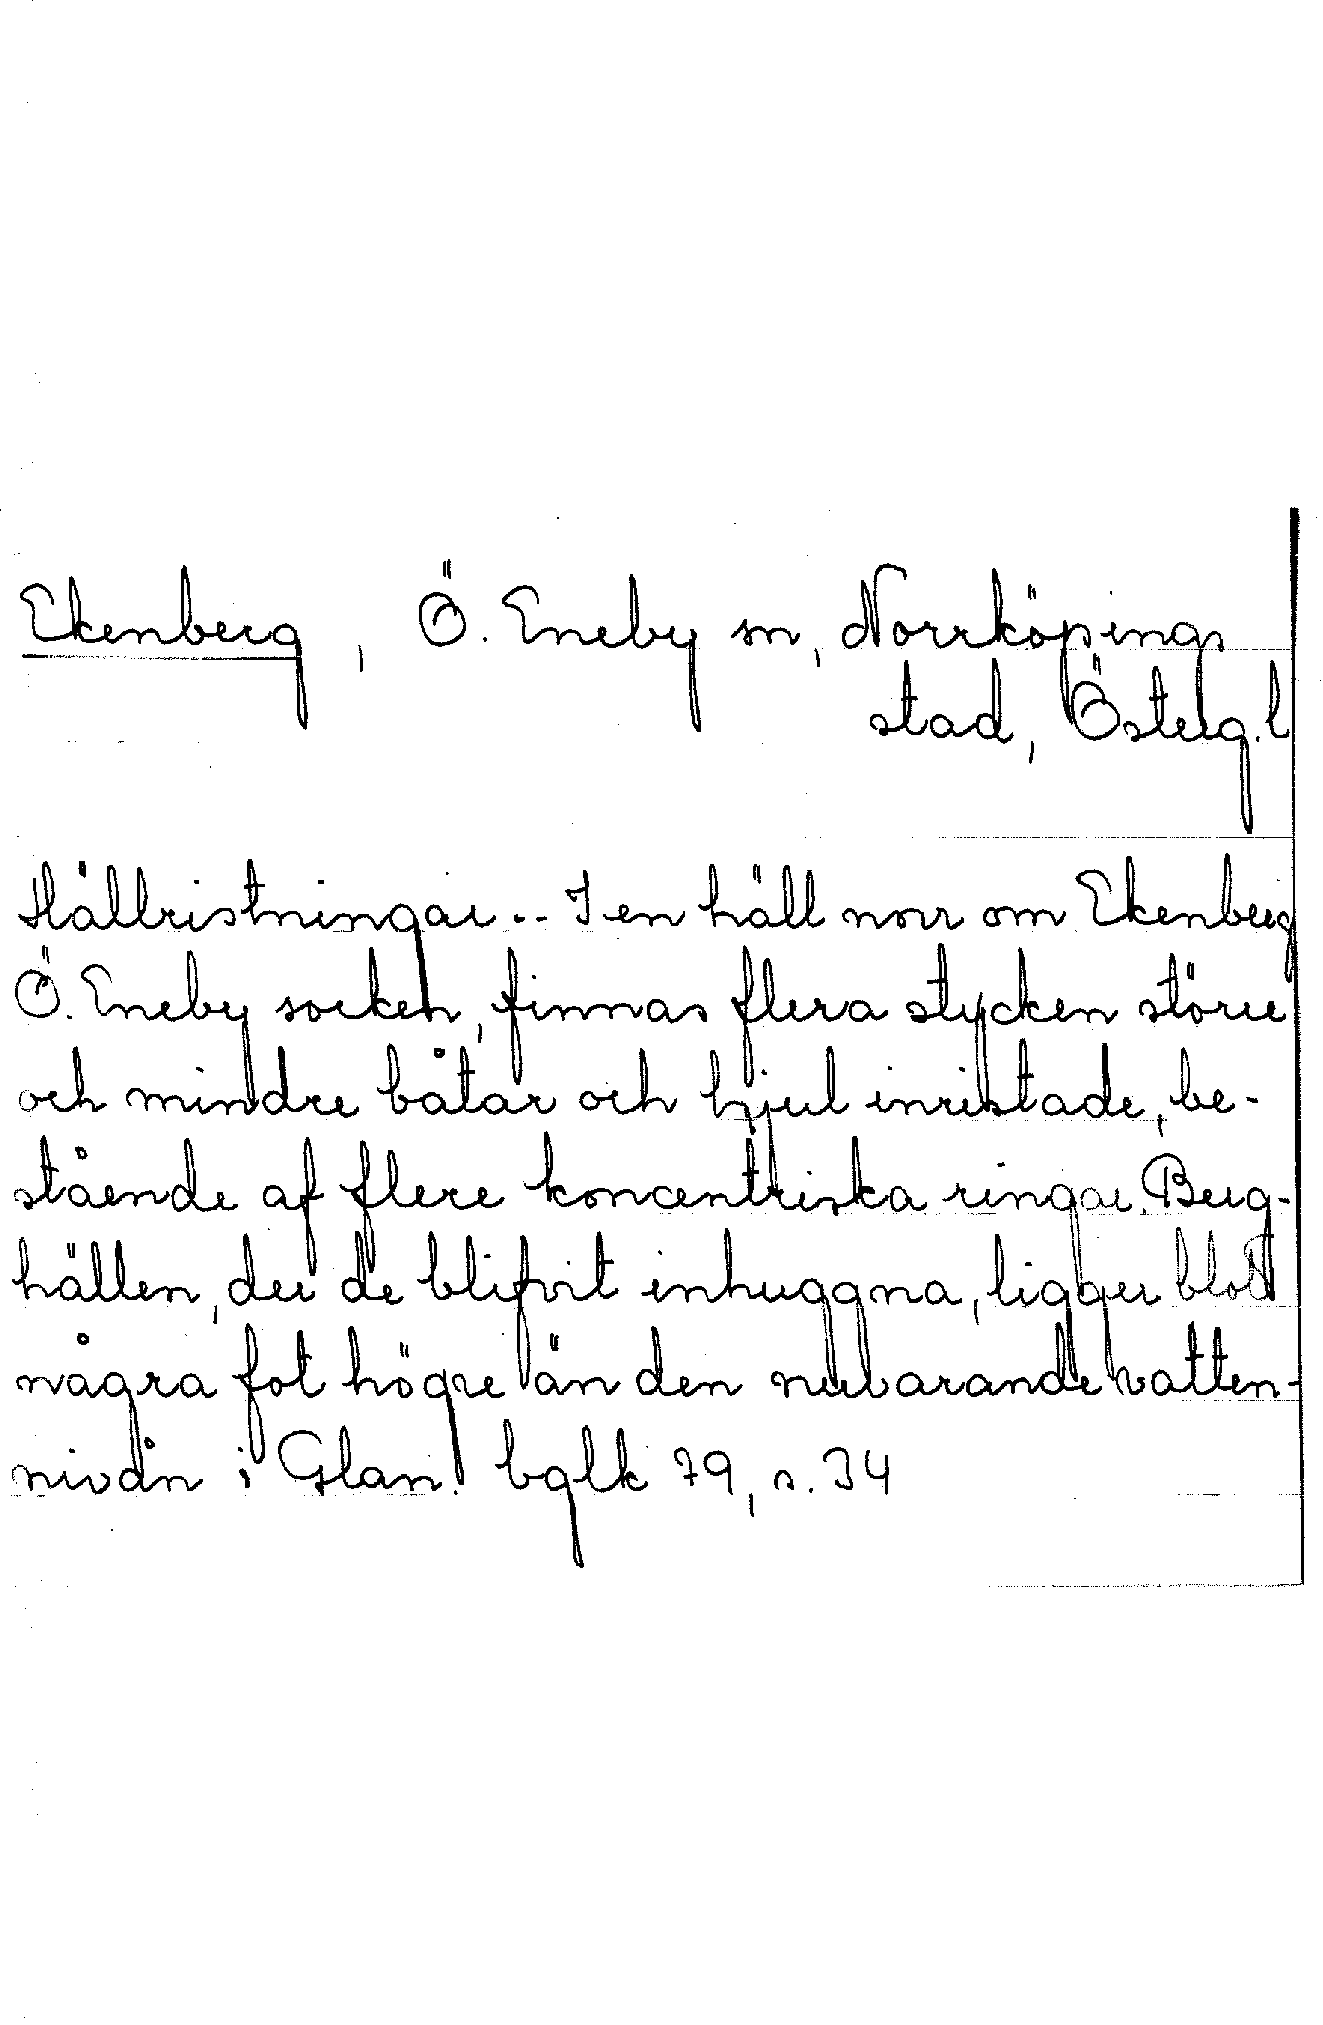 Ekenberg, Ö. Eneby sn, Norrköpings
stad, Österg.l
Hällristningar.. I en häll norr om Ekenberg
Ö. Eneby socken, finnas flera stycken större
och mindre båtar och hjul inristade, be-
stående af flere koncentriska ringar. Berg-
hällen, der de blifvit inhuggna, ligger blott
några fot högre än den nuvarande vatten-
nivån i Glan. bglk 79, s. 34